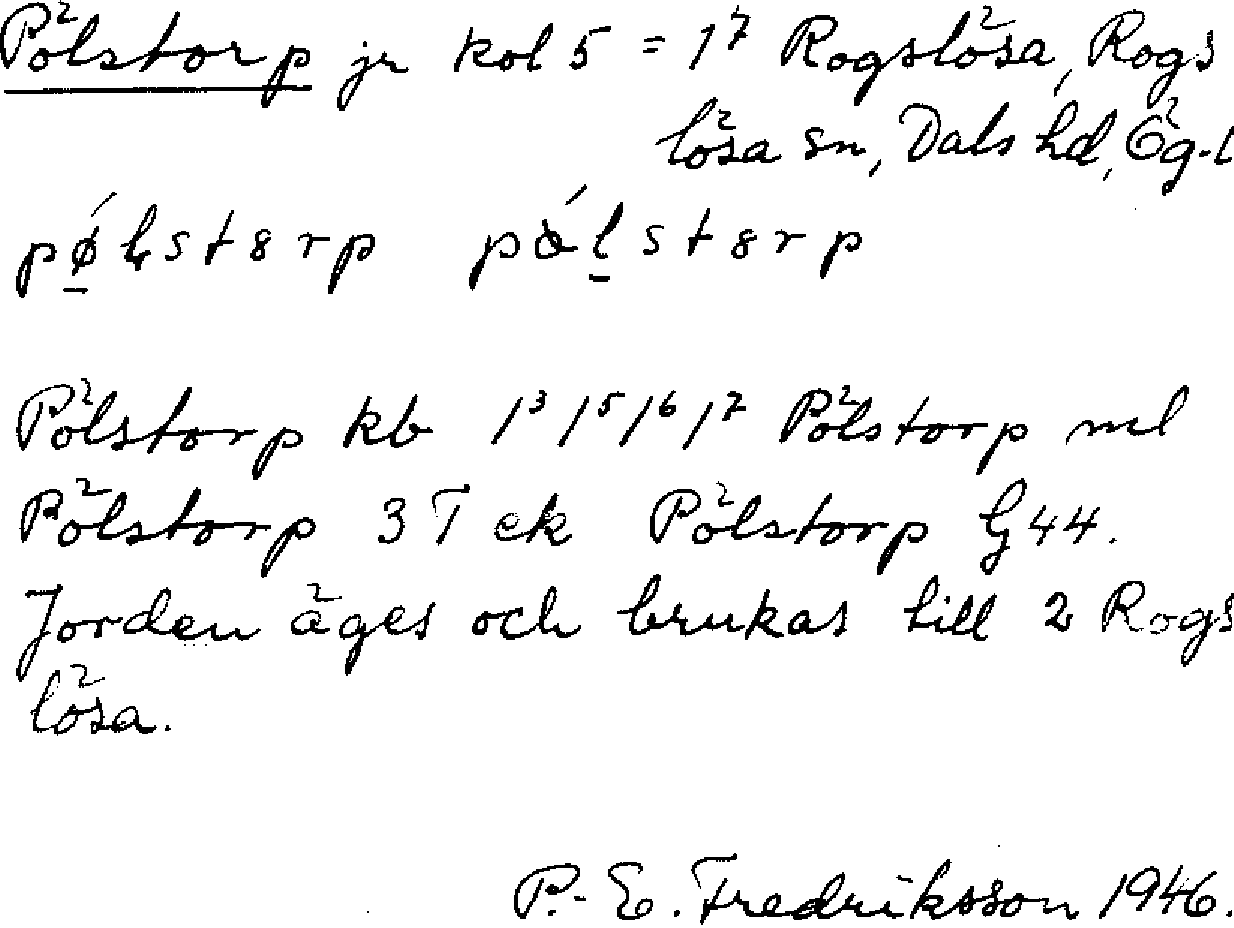 Pölstorp jr kol 5 = 1⁷ Rogslösa, Rogs
lösa sn, Dals hd, Ög.l
pǿłstȣrp pòlstȣrp
Pölstorp kb 1³ 1⁵ 1⁶ 1⁷ Pölstorp ml
Pölstorp 3 T ek Pölstorp G 44.
Jorden äges och brukas till 2 Rogs
lösa.
P.-E. Fredriksson 1946.